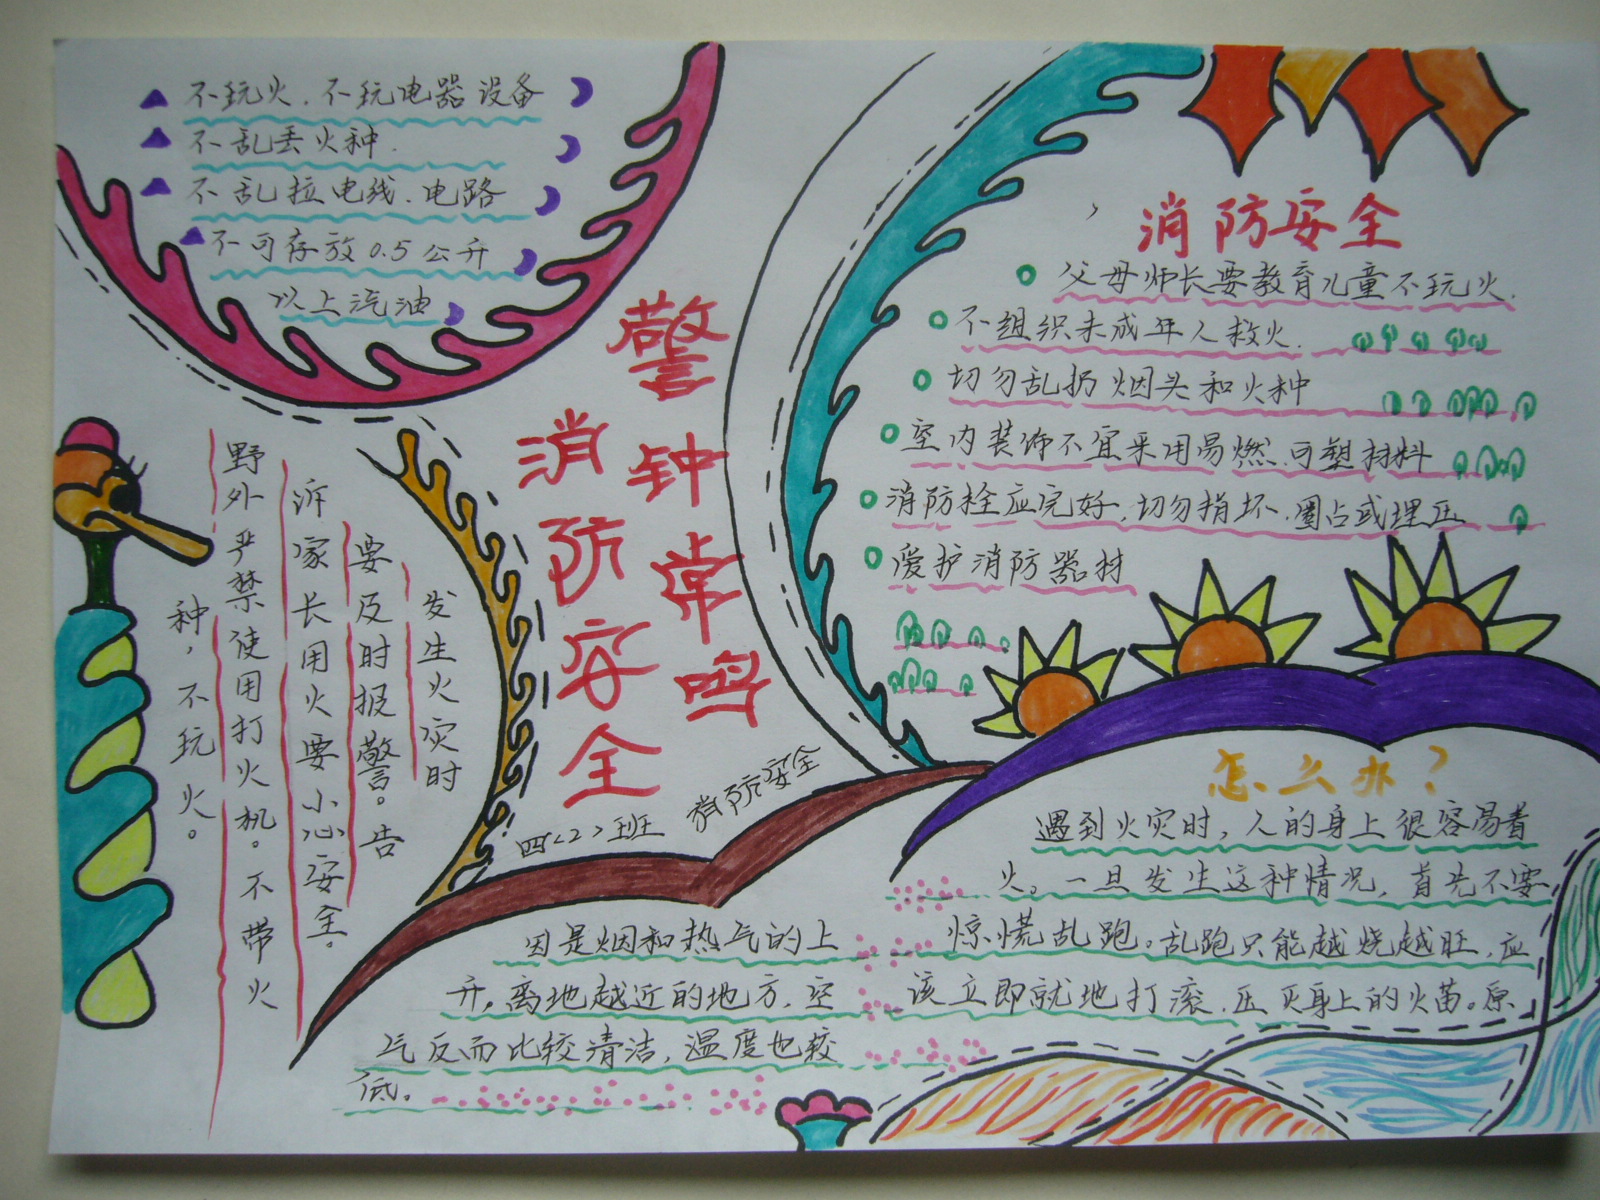 不玩火.不玩电器设备
不乱丢火种.
不乱拉电线.电路
不可存放0.5公升
以上汽油
警钟常鸣
消防安全
四<2>班
消防安全
发生火灾时
要及时报警。告
诉家长用火要小心安全。
野外严禁使用打火机。不带火
种，不玩火。
消防安全
父母师长要教育儿童不玩火.
不组织未成年人救火.
切勿乱扔烟头和火种
室内装饰不宜采用易燃.可塑材料
消防栓应完好,切勿损坏.圈占或埋压
爱护消防器材
怎么办？
遇到火灾时，人的身上很容易着
火。一旦发生这种情况，首先不要
惊慌乱跑。乱跑只能越烧越旺，应
该立即就地打滚.压灭身上的火苗。原
因是烟和热气的上
升。离地越近的地方.空
气反而比较清洁，温度也较
低。